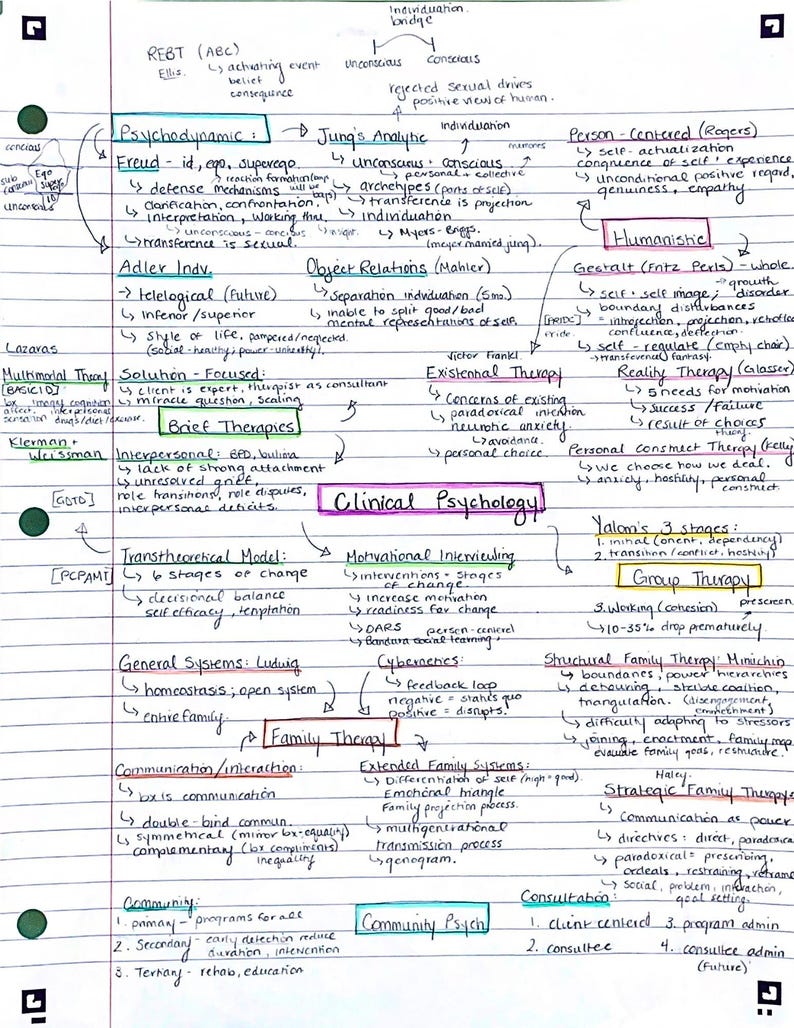 Individuation
bridge
unconscious
conscious
REBT (ABC)
Ellis.
↳ activating event
belief
consequence
rejected sexual drives
positive view of human.
Psychodynamic:
Freud - id, ego, superego.
↳ defense mechanisms
clarification, confrontation,
↳ interpretation, working thru.
↳ unconscious - concious ↳ insight.
↳ transference is sexual.
concious
Ego
super
ego
ID
sub
Jung's Analytic
individuation
memories
↳ unconscious + conscious
↳ personal + collective
↳ archetypes (parts of self)
↳ transference is projection
↳ individuation
↳ Myers-Briggs.
(meyer married jung).
Person-Centered (Rogers)
↳ self-actualization
congruence of self + experience
↳ unconditional positive regard,
genuiness, empathy
Humanistic
Adler Indv.
→ telelogical (future)
↳ inferior/superior
↳ style of life, pampered/neglected.
(social-healthy; power-unhealthy).
Object Relations (Mahler)
↳ Separation individuation (5mo.)
↳ inable to split good/bad
mental representations of self.
Gestalt (Fritz Perls) - whole.
↳ self + self image; growth disorder
↳ boundary disturbances
= introjection, projection,
confluence, deflection.
[PRIDC]
Pride.
↳ self-regulate (empty chair)
→ transference fantasy.
Lazaras
Multimodal Theory
[BASIC ID]
bx imagry cognition
affect, interpersonal
sensation drugs/diet/exercise.
Solution-Focused:
↳ client is expert, therapist as consultant
↳ miracle question, scaling
Brief Therapies
Victor Frankl.
Existential Therapy
↳ Concerns of existing
↳ paradoxical intention
neurotic anxiety.
↳ avoidance.
↳ personal choice.
Reality Therapy (Glasser)
↳ 5 needs for motivation
↳ success/failure
↳ result of choices
theory.
Personal Construct Therapy (Kelly)
↳ we choose how we deal.
↳ anxiety, hostility, personal
construct.
Klerman +
Weissman
Interpersonal: BPD, bulimia
↳ lack of strong attachment
↳ unresolved grief,
role transitions, role disputes,
interpersonal deficits.
Clinical Psychology
Yalom's 3 stages:
1. initial (orient, dependency)
2. transition (conflict, hostility)
Group Therapy
3. Working (cohesion)
prescreen
↳ 10-35% drop prematurely.
[PCPAMT]
Transtheoretical Model:
↳ 6 stages of change
↳ decisional balance
self efficacy, temptation
Motivational Interviewing
↳ interventions = stages
of change.
↳ increase motivation
↳ readiness for change
↳ OARS person-centered
↳ Bandura social learning,
General Systems: Ludwig
↳ homeostasis; open system
↳ entire family.
Cybernetics:
↳ feedback loop
negative = status quo
positive = disrupts.
Structural Family Therapy: Minuchin
↳ boundaries, power hierarchies
↳ detouring, stable coalition,
triangulation. (disengagement,
enmeshment)
↳ difficulty adapting to stressors
↳ joining, enactment, family map
evaluate family goals, restructure.
Family Therapy
Communication/interaction:
↳ bx is communication
↳ double-bind commun.
↳ symmetrical (mirror bx-equality)
complementary (bx compliments)
inequality
Extended Family Systems:
↳ Differentiation of self (high=good).
Emotional triangle
Family projection process.
↳ multigenerational
transmission process
↳ genogram.
Haley.
Strategic Family Therapy:
↳ Communication as power
↳ directives: direct, paradoxical
↳ paradoxical = prescribing,
ordeals, restraining, reframe
↳ social, problem, interaction,
goal setting.
Community:
1. primary - programs for all
2. Secondary - early detection reduce
duration, intervention
3. Tertiary - rehab, education
Community Psych
Consultation:
1. client centered
2. consultee
3. program admin
4. consultee admin
(future)